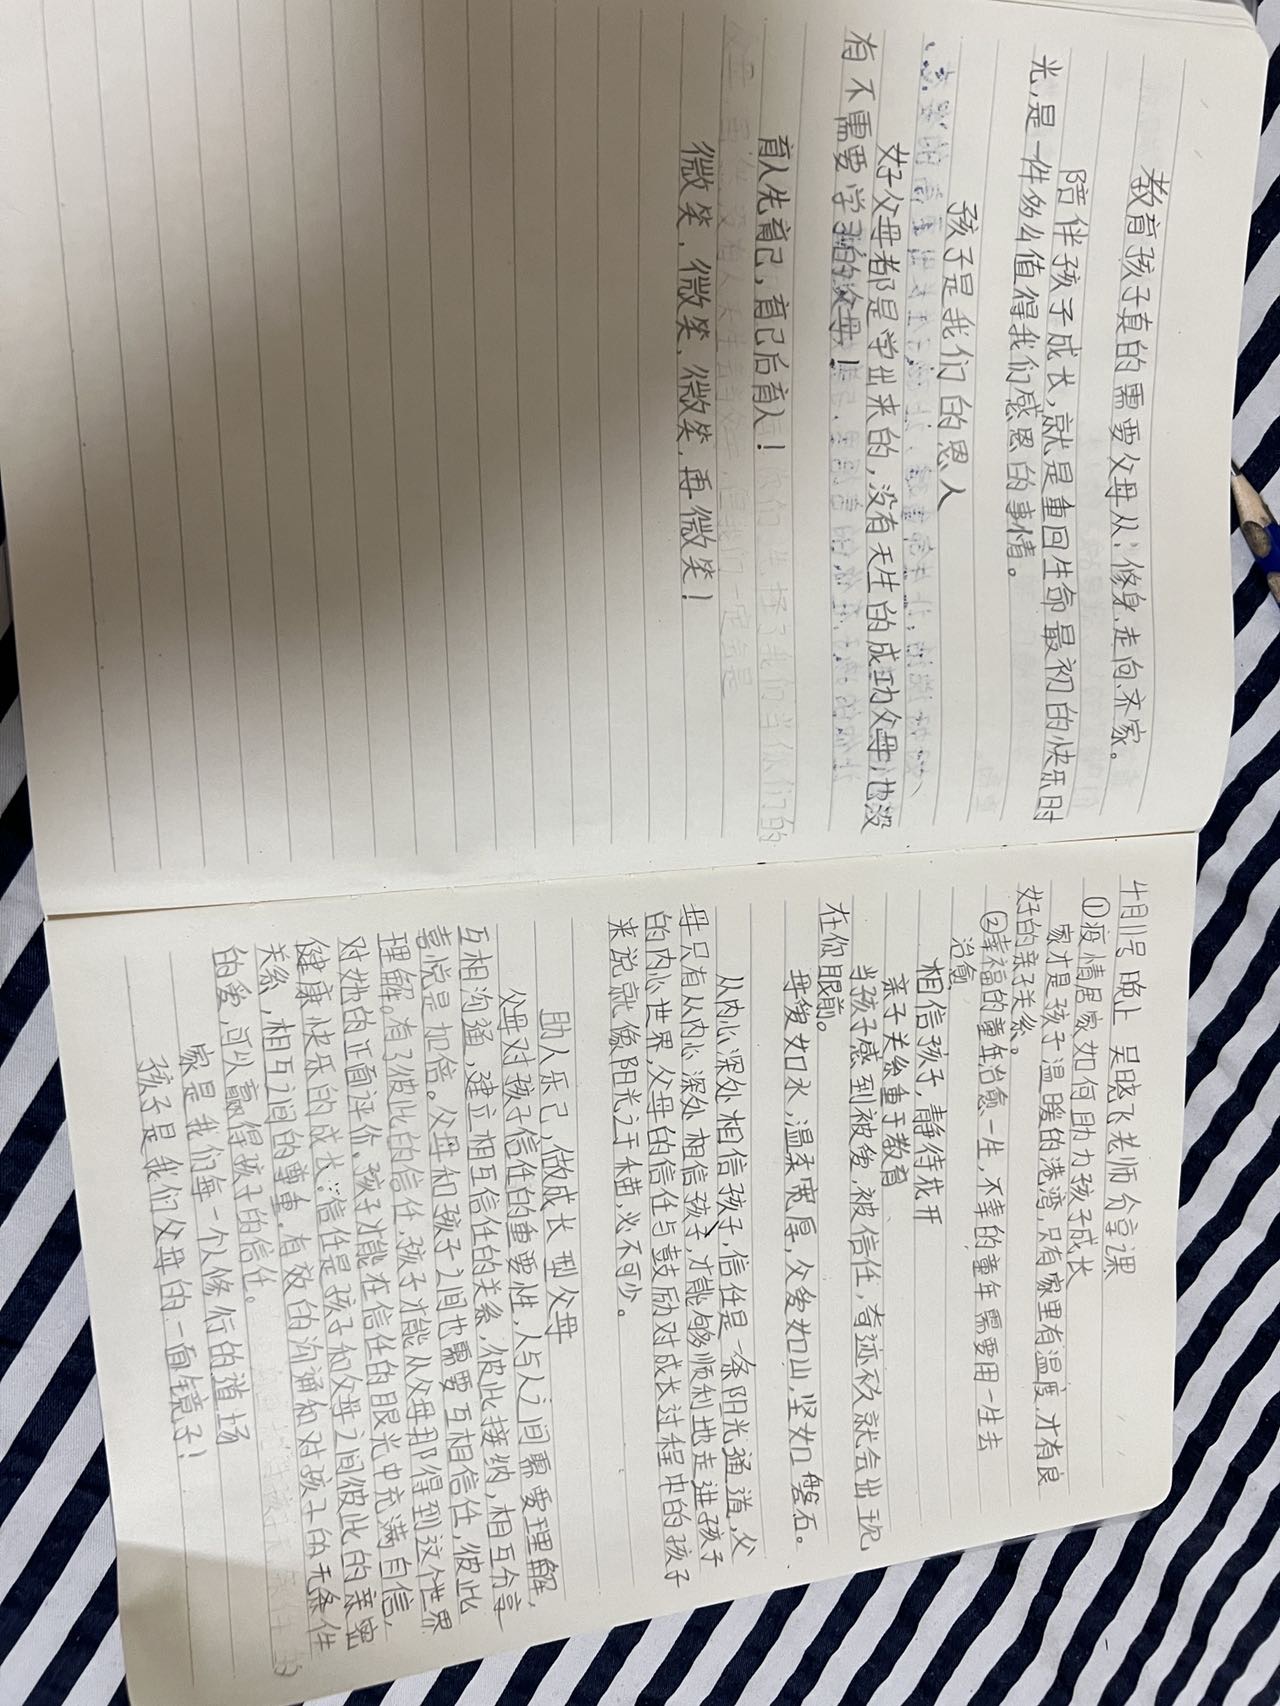 教育孩子真的需要父母从:修身,走向齐家。
陪伴孩子成长,就是重回生命最初的快乐时
光,是一件多么值得我们感恩的事情。
孩子是我们的恩人
好父母都是学出来的,没有天生的成功父母,也没
有不需要学习的父母!
育人先育己,育己后育人!
微笑,微笑,微笑,再微笑!
4月11号 晚上 吴晓飞老师分享课
①疫情居家如何助力孩子成长
家才是孩子温暖的港湾,只有家里有温度,才有良
好的亲子关系。
②幸福的童年治愈一生,不幸的童年需要用一生去
治愈
相信孩子,静待花开
亲子关系重于教育
当孩子感到被爱,被信任,奇迹秒就会出现
在你眼前。
母爱如水,温柔宽厚,父爱如山,坚如磐石。
从内心深处相信孩子,信任是一条阳光通道,父
母只有从内心深处相信孩子,才能够顺利地走进孩子
的内心世界,父母的信任与鼓励对成长过程中的孩子
来说就像阳光之于禾苗,必不可少。
助人乐己,做成长型父母
父母对孩子信任的重要性,人与人之间需要理解,
互相沟通,建立相互信任的关系,彼此接纳,相互分享
喜悦是加倍。父母和孩子之间也需要互相信任,彼此
理解。有了彼此的信任,孩子才能从父母那得到这个世界
对她的正面评价。孩子才能在信任的眼光中充满自信,
健康快乐的成长:信任是孩子和父母之间彼此的亲密
关系,相互间的尊重,有效的沟通和对孩子的无条件
的爱,可以赢得孩子的信任。
家是我们每一个人修行的道场
孩子是我们父母的一面镜子!